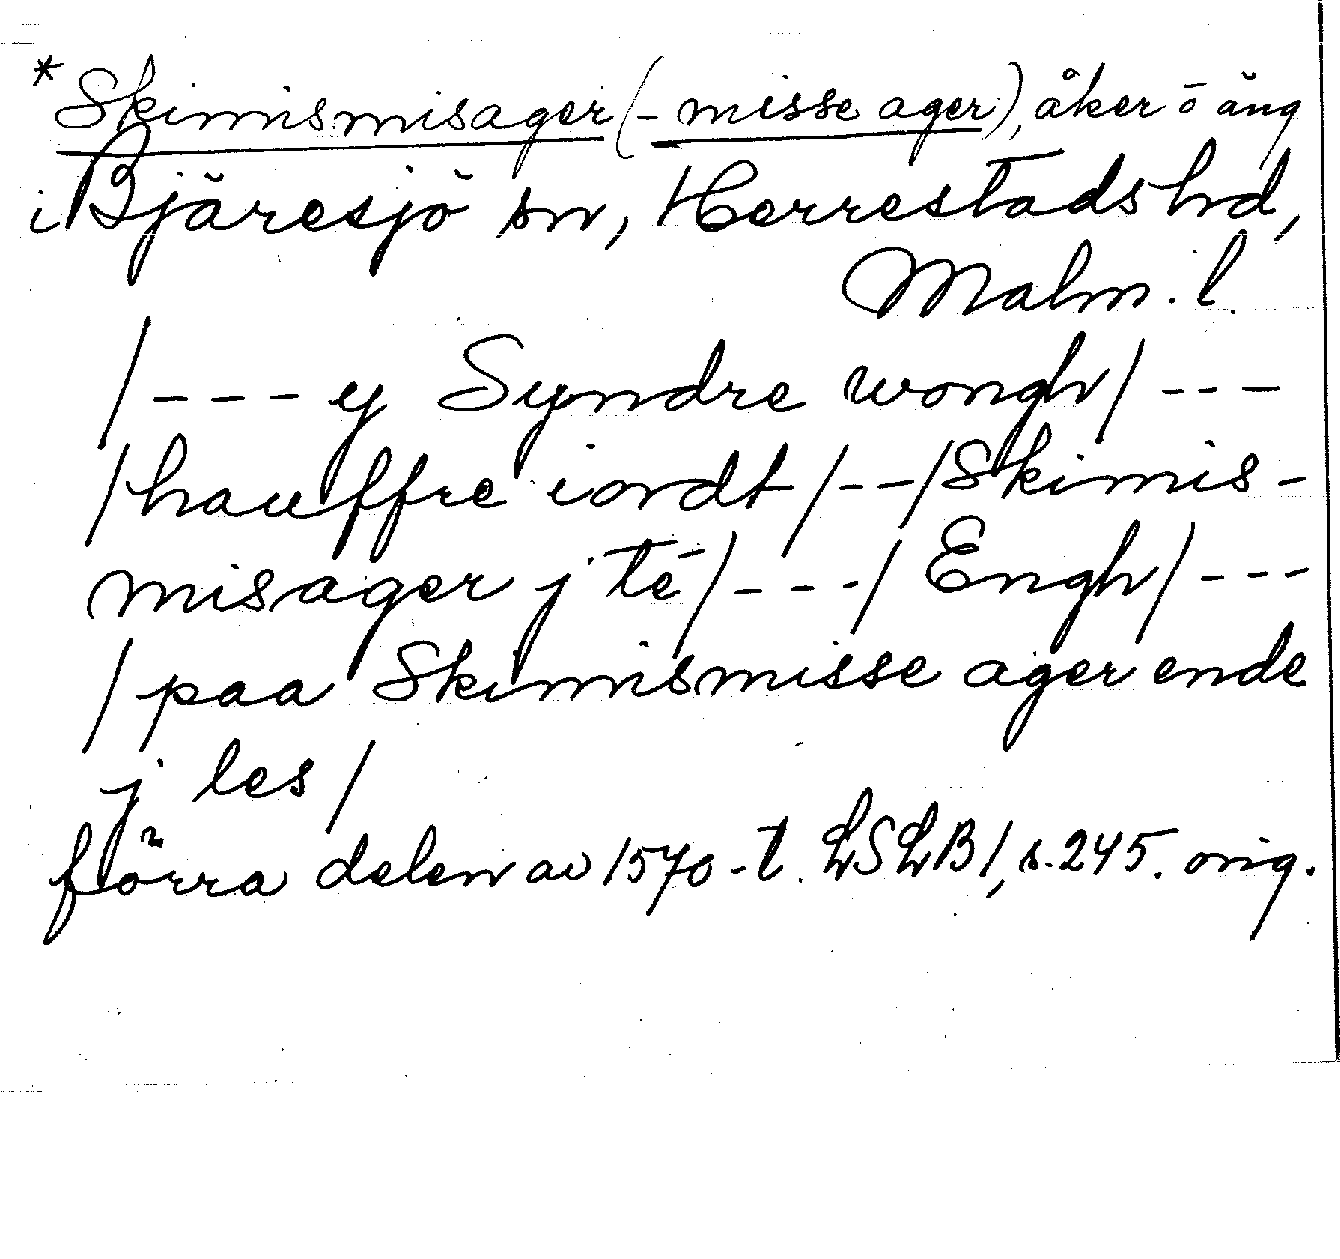 *Skinnismisager (-misse ager), åker o äng
i Bjäresjö sn, Herrestads hd,
Malm. l.
/---y Syndre wongh/---
/haueffre iordt/--/Skinnis-
misager j te/---/Engh/---
/paa Skinnismisse ager ende
j les/
förra delen av 1570-t. LSLB1, s. 245. orig.